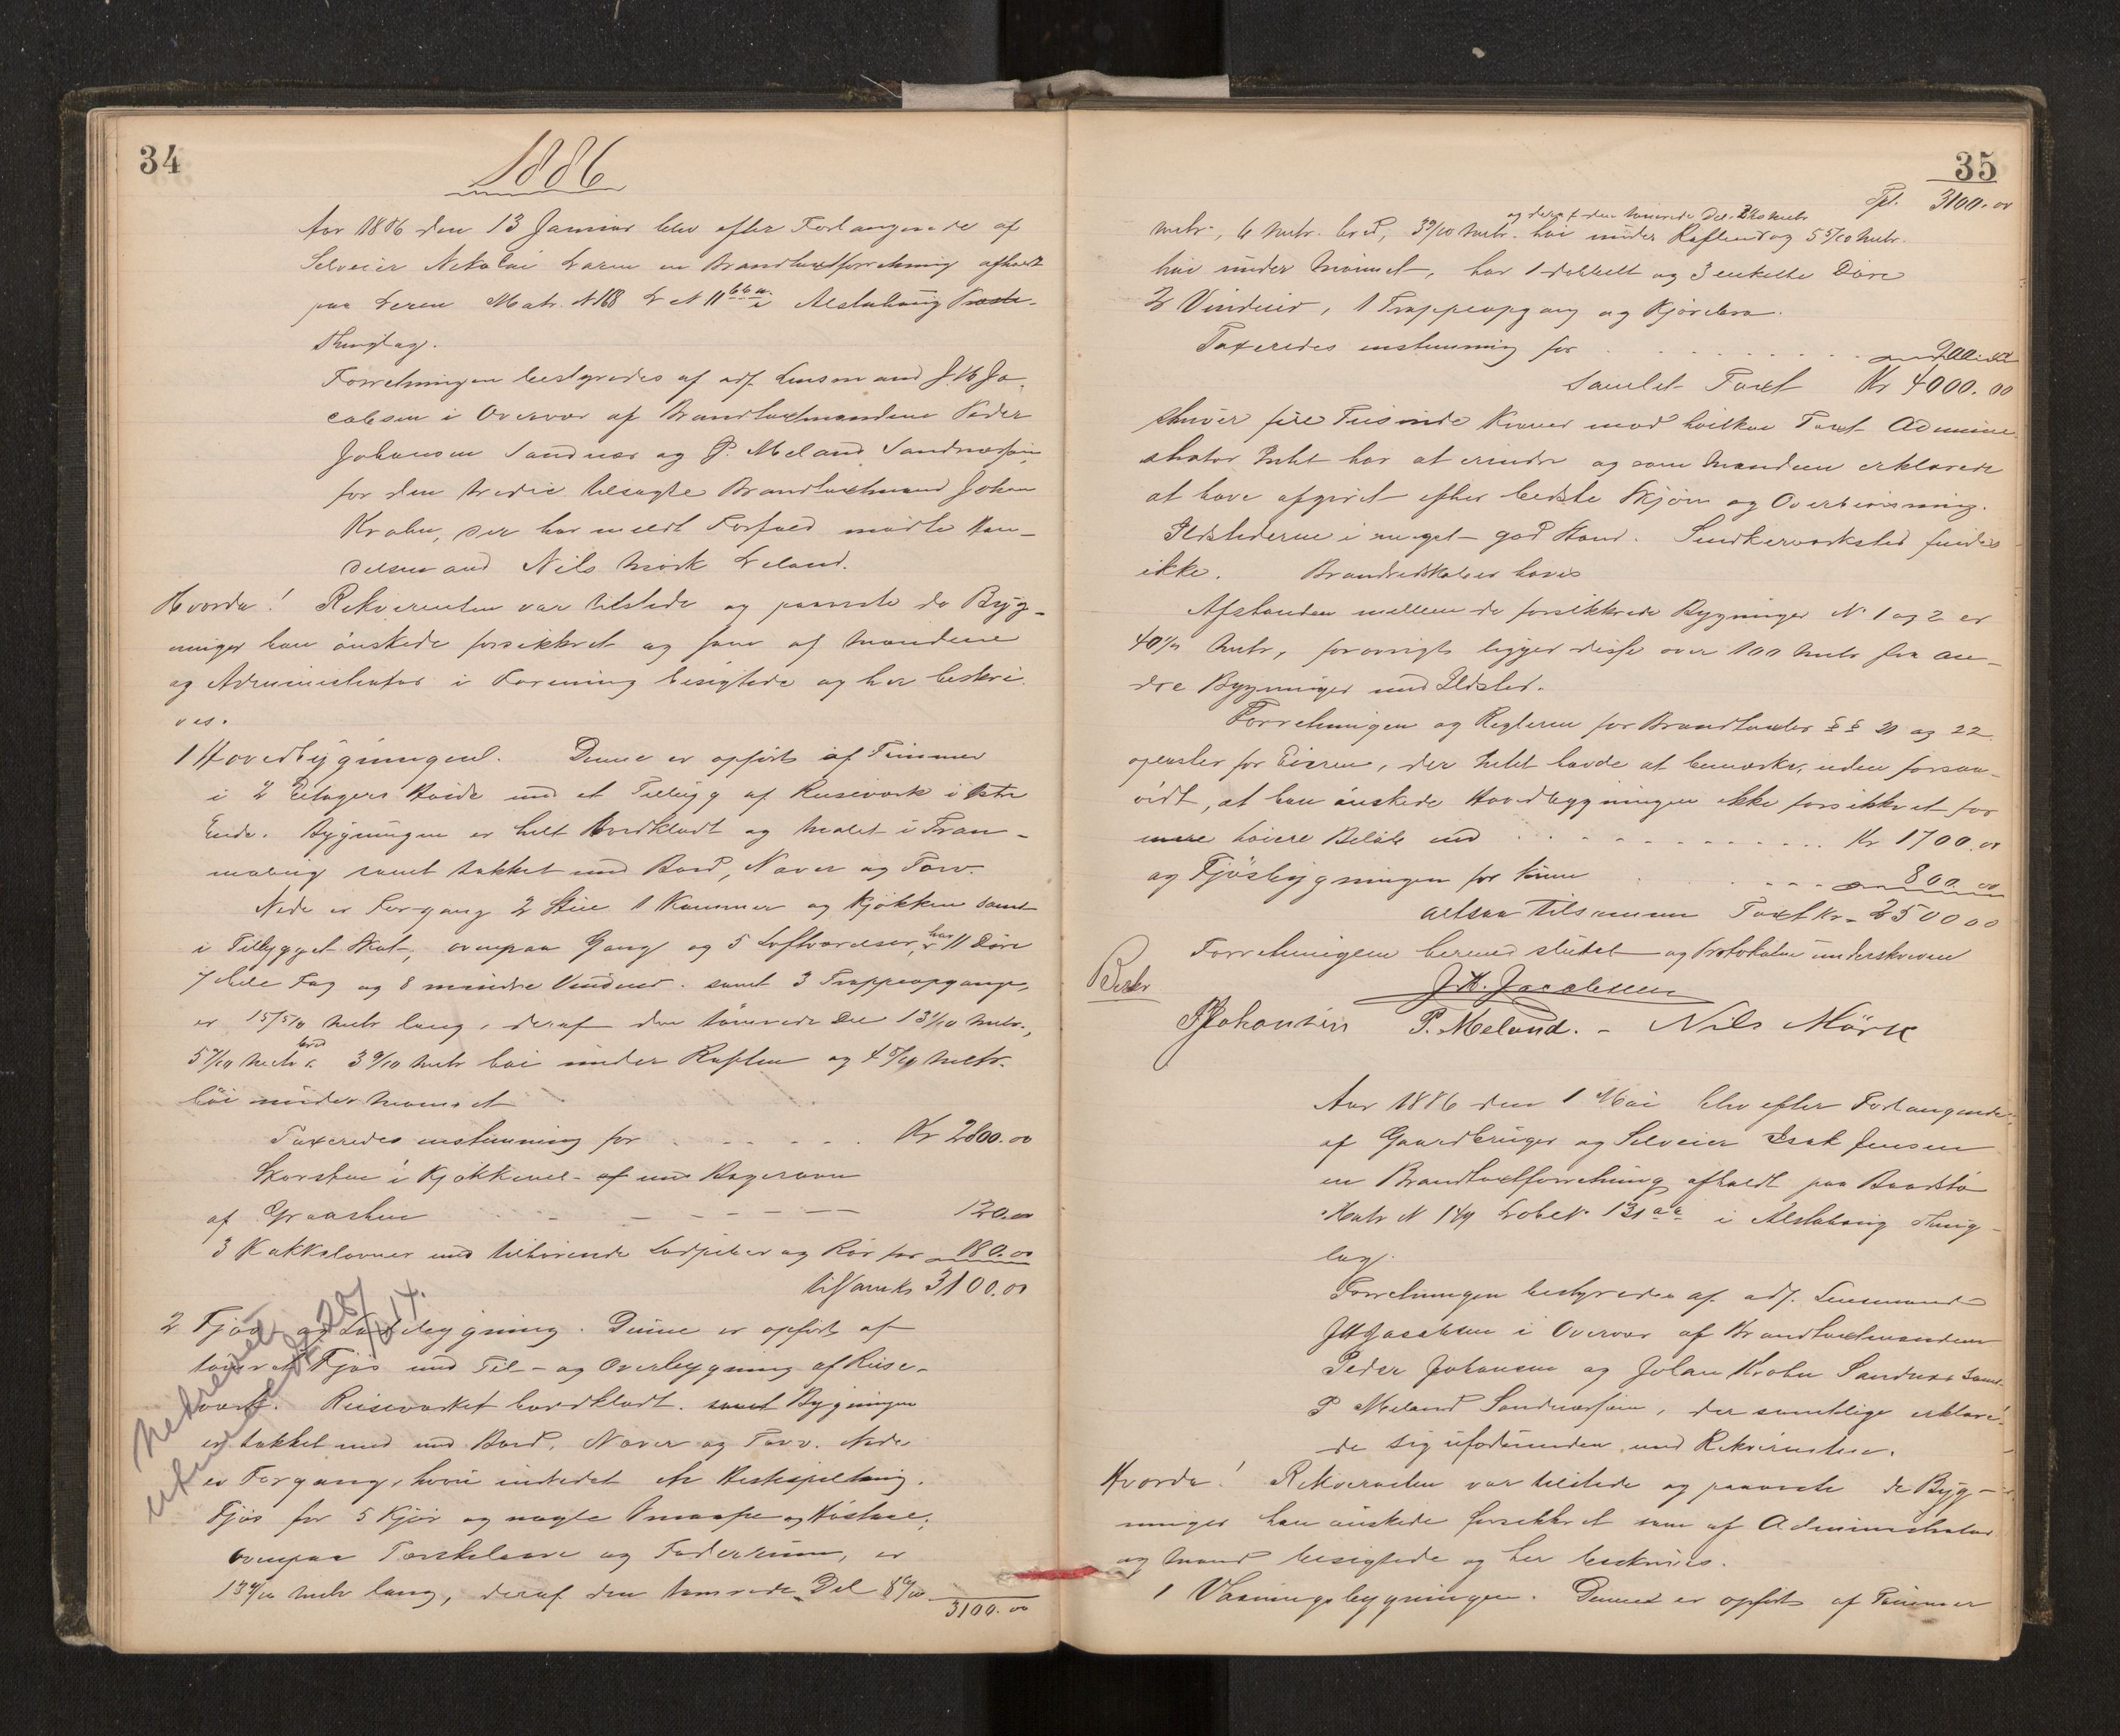 34
1886
Aar 1886 den 13 Januar blev efter Forlangende af
Selveier Nikolai Laren en Brandtaxtforretning afholdt
paa Leren Matr. N 168 L N 11 i Alstahaug
Thinglag.
Forretningen bestyredes af adj. Lensmand J. H. Ja-
cobsen i Overvær af Brandtaxtmændene Peder
Johansen Sandnæs og P. Meland Sandnæsøen,
for den tredie tilsagte Brandtaxtmand Johan
Krohn, der har meldt Forfald mødte Han-
delsmand Nils Mørk Leland.
Hvorda! Rekvirenten var tilstede og paaviste de Byg-
ninger han ønskede forsikkret og som af Mændene
og Administrator i Forening besigtede og her beskri-
ves.
1 Hovedbygningen. Denne er opført af Tømmer
i 2 Etagers Høide med et Tilbyg af Reisværk i østre
Ende. Bygningen er helt bordklædt og malet i Tran-
maling samt takket med Bord, Næver og Torv.
Nede er Forgang 2 Stuer 1 Kammer og Kjøkken samt
i Tilbygget Skot, ovenpaa Gang og 5 Loftværelser, har 11 Døre
7 hele Fag og 8 mindre Vinduer samt 3 Trappeopgange,
er 15 5/10 Metr lang, deraf den tømrede Del 13 1/10 Metr.,
Metr bred 3 9/10 Metr høi under Raften og Metr.
høi under Mønnet
Taxeredes enstemmig for . . . . . Kr 2800.00
Skorsten i Kjøkkenet af med Bagerovn
af Graasten - - - - - - 120.00
3 Kakkelovner med tilhørende Ledpiber og Rør for 180.00
tilsamens 3100.00
2 Fjøs og Ladebygning. Denne er opført af
tømret Fjøs med Til- og Overbygning af Reis-
værk. Reisværket bordklædt. samt Bygningen
er takket med med Bord, Næver og Torv. Nede
er Forgang, hvori indredet en Hestspiltaug.
Fjøs for 5 Kjør og nogle Smaafæ og Høstaae,
ovenpaa Tærskelaave og Foderrum, er
Metr lang, deraf den tømrede Del
3100.00
35
Tpt. 3100.00
og deraf den tømrede Del Metr
Metr, 6 Metr. bred, 3 9/10 Metr. høi under Raftend og 5 5/10 Metr.
høi under Mønnet, har 1 dobbelt og 3 enkelte Døre
2 Vinduer, 1 Trappeopgang og Kjørebro.
Taxeredes enstemmig for . . . . . . . . . 900.00
Samlet Taxt Kr 4000.00
skriver fire Tusinde Kroner mod hvilken Taxt Admini-
strator Intet har at erindre og som Mændene erklærede
at have afgivet efter bedste Skjøn og Overbevisning.
Ildstederne i meget god Stand. Snedkerværksted findes
ikke. Brandredskaber haves
Afstanden mellem de forsikkrede Bygninger N. 1 og 2 er
Metr, forøvrigt ligger disse over 100 Metr fra an-
dre Bygninger med Ildsted.
Forretningen og Reglerne for Brandtaxter §§ 21 og 22
oplæstes for Eieren, der Intet havde at bemærke, uden forsaa-
vidt, at han ønskede Hovedbygningen ikke forsikkret for
mere høiere Beløb end . . . . . . . . . . . Kr 1700.00
og Fjøsbygningen for Kun . . . . . 800.00
altsaa tilsammen Taxt Kr. 2500 00
Forretningen hermed sluttet og Protokolen underskreven
J. H. Jacobsen
PJohansen P. Meland. - Nils Mörk
Aar 1886 den 1 Mai blev efter Forlangende
af Gaardbruger og Selveier Isak Jensen
en Brandtaxtforretning afholdt paa
Matr N Løbe N. i Alstahaug Thing-
lag.
Forretningen bestyredes af adj. Lensmand
JHJacobsen i Overvær af Brandtaxtmændene
Peder Johansen og Johan Krohn Sandnæs samt
P Meland Sandnæsøen, der samtlige erklære-
de sig ubeslægtede med Rekvirenten.
Hvorda! Rekvirenten var tilstede og paaviste de Byg-
ninger han ønskede forsikkret som af Administrator
og Mænd besigtede og her beskrives.
1 Vaaningsbygningen. Denne er opført af Tømmer